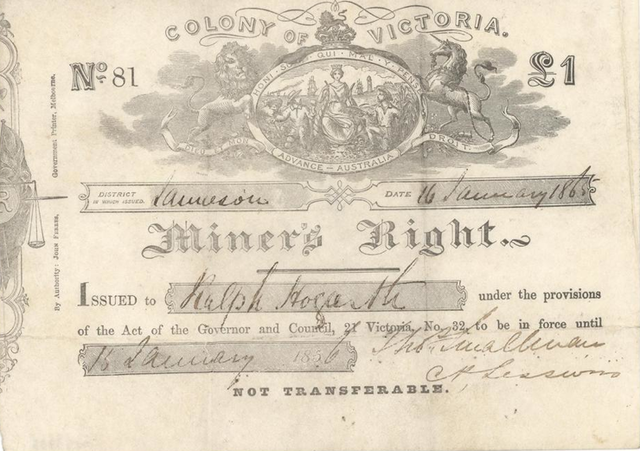 COLONY OF VICTORIA.
No. 81
£1
HONI · SOIT · QUI · MAL · Y · PENSE
DIEU ET MON DROIT
ADVANCE – AUSTRALIA
DISTRICT IN WHICH ISSUED. Jamieson DATE 16 January 186
Miner's Right.
ISSUED TO Ralph Hogarth under the provisions
of the Act of the Governor and Council, 21 Victoria, No. 32, to be in force until
15 January
NOT TRANSFERABLE.
By Authority: JOHN FERRES, Government Printer, Melbourne.